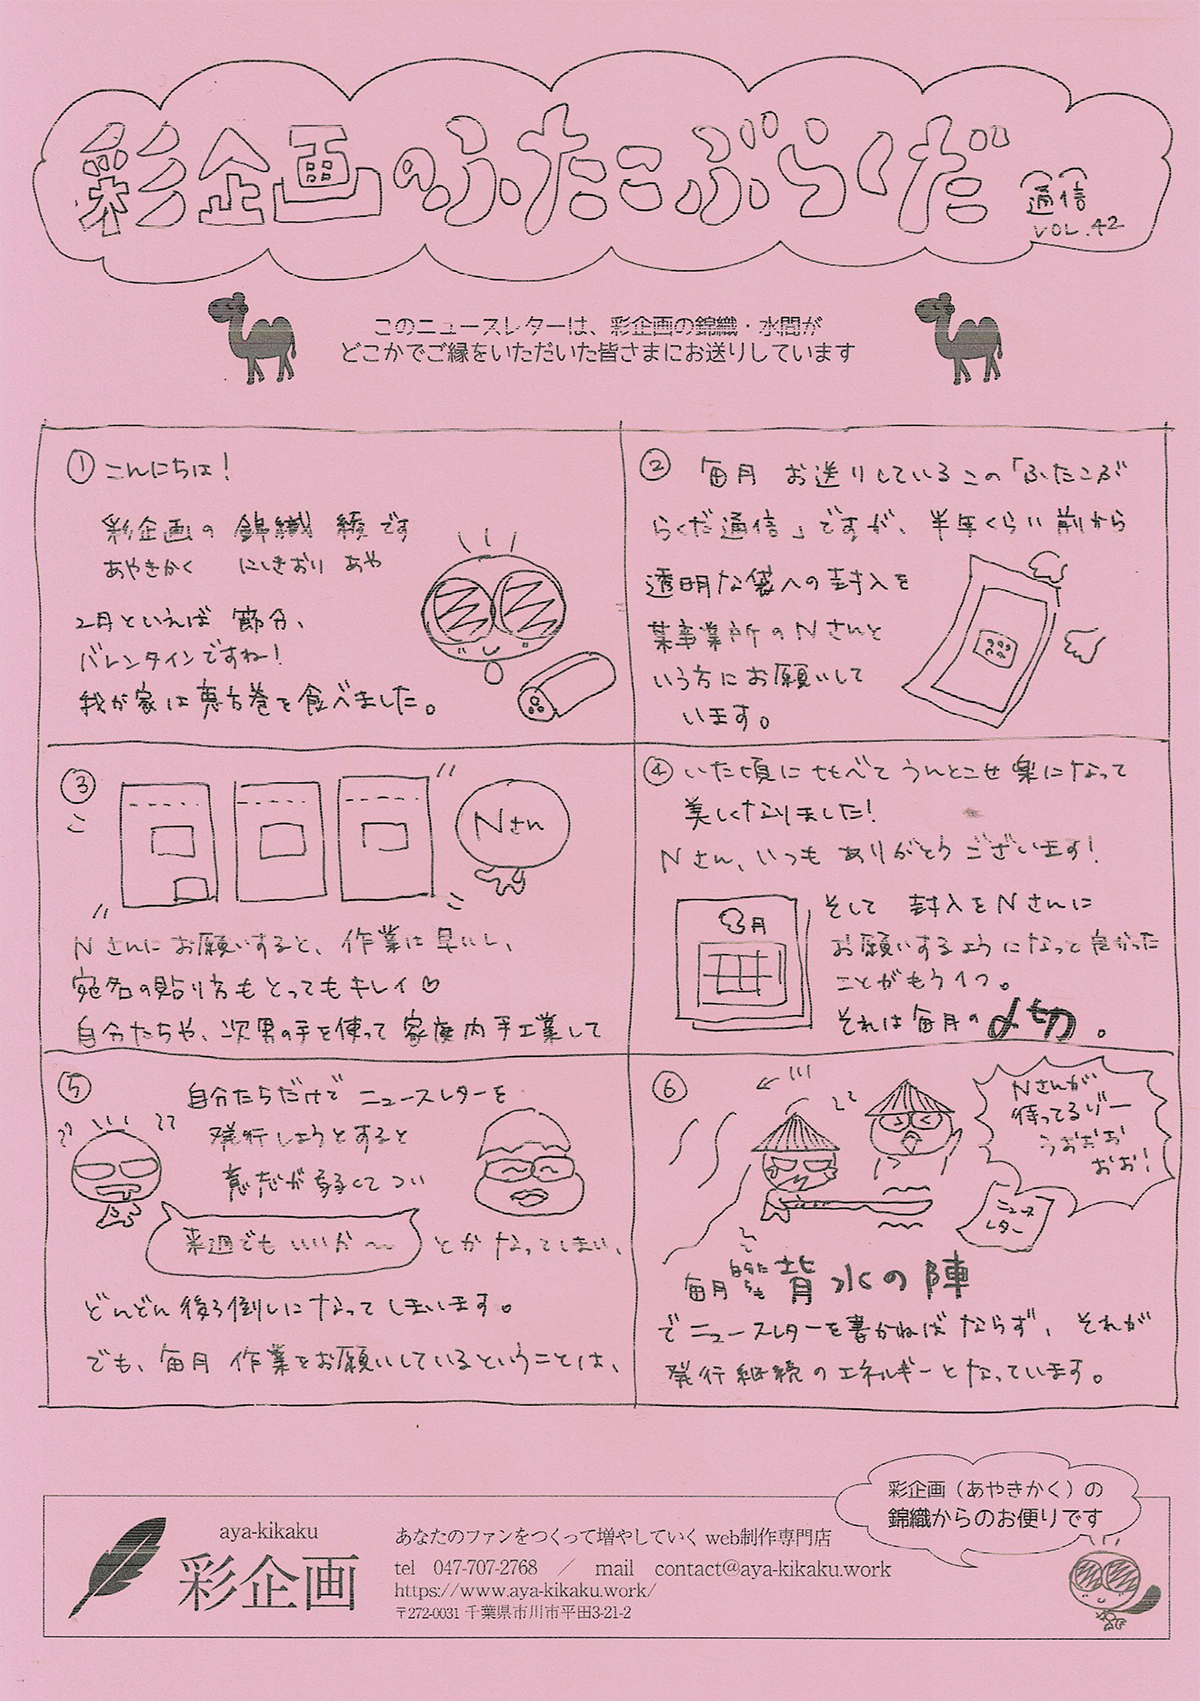 彩企画のふたこぶらくだ
通信
VOL.42
このニュースレターは、彩企画の錦織・水間が
どこかでご縁をいただいた皆さまにお送りしています
① こんにちは!
彩企画の 錦織 綾です
あやきかく にしきおり あや
2月といえば 節分、
バレンタインですね!
我が家は恵方巻を食べました。
② 毎月 お送りしているこの「ふたこぶ
らくだ通信」ですが、半年くらい前から
透明な袋への封入を
某事業所のNさんと
いう方にお願いして
います。
③
Nさん
Nさんにお願いすると、作業は早いし、
宛名の貼り方もとってもキレイ♡
自分たちや、次男の手を使って家庭内手工業して
④ いた頃にせべて うんとこせ 楽になって
美しくなりました!
Nさん、いつも ありがとう ございます!
2月
そして 封入をNさんに
お願いするようになっと良かった
ことがもう1つ。
それは毎月の〆切。
⑤ 自分たちだけで ニュースレターを
発行しようとすると
意志が弱くて つい
来週でも いいか〜
とか なってしまい、
どんどん後ろ倒しになってしまいます。
でも、毎月 作業をお願いしているということは、
⑥
Nさんが
待ってるゾー
うおおお
おお!
ニュース
レター
毎月 自分たちも 背水の陣
でニュースレターを書かねばならず、それが
発行継続のエネルギーとなっています。
彩企画(あやきかく)の
錦織からのお便りです
aya-kikaku
彩企画
あなたのファンをつくって増やしていく web制作専門店
tel 047-707-2768 / mail contact@aya-kikaku.work
https://www.aya-kikaku.work/
〒272-0031 千葉県市川市平田3-21-2